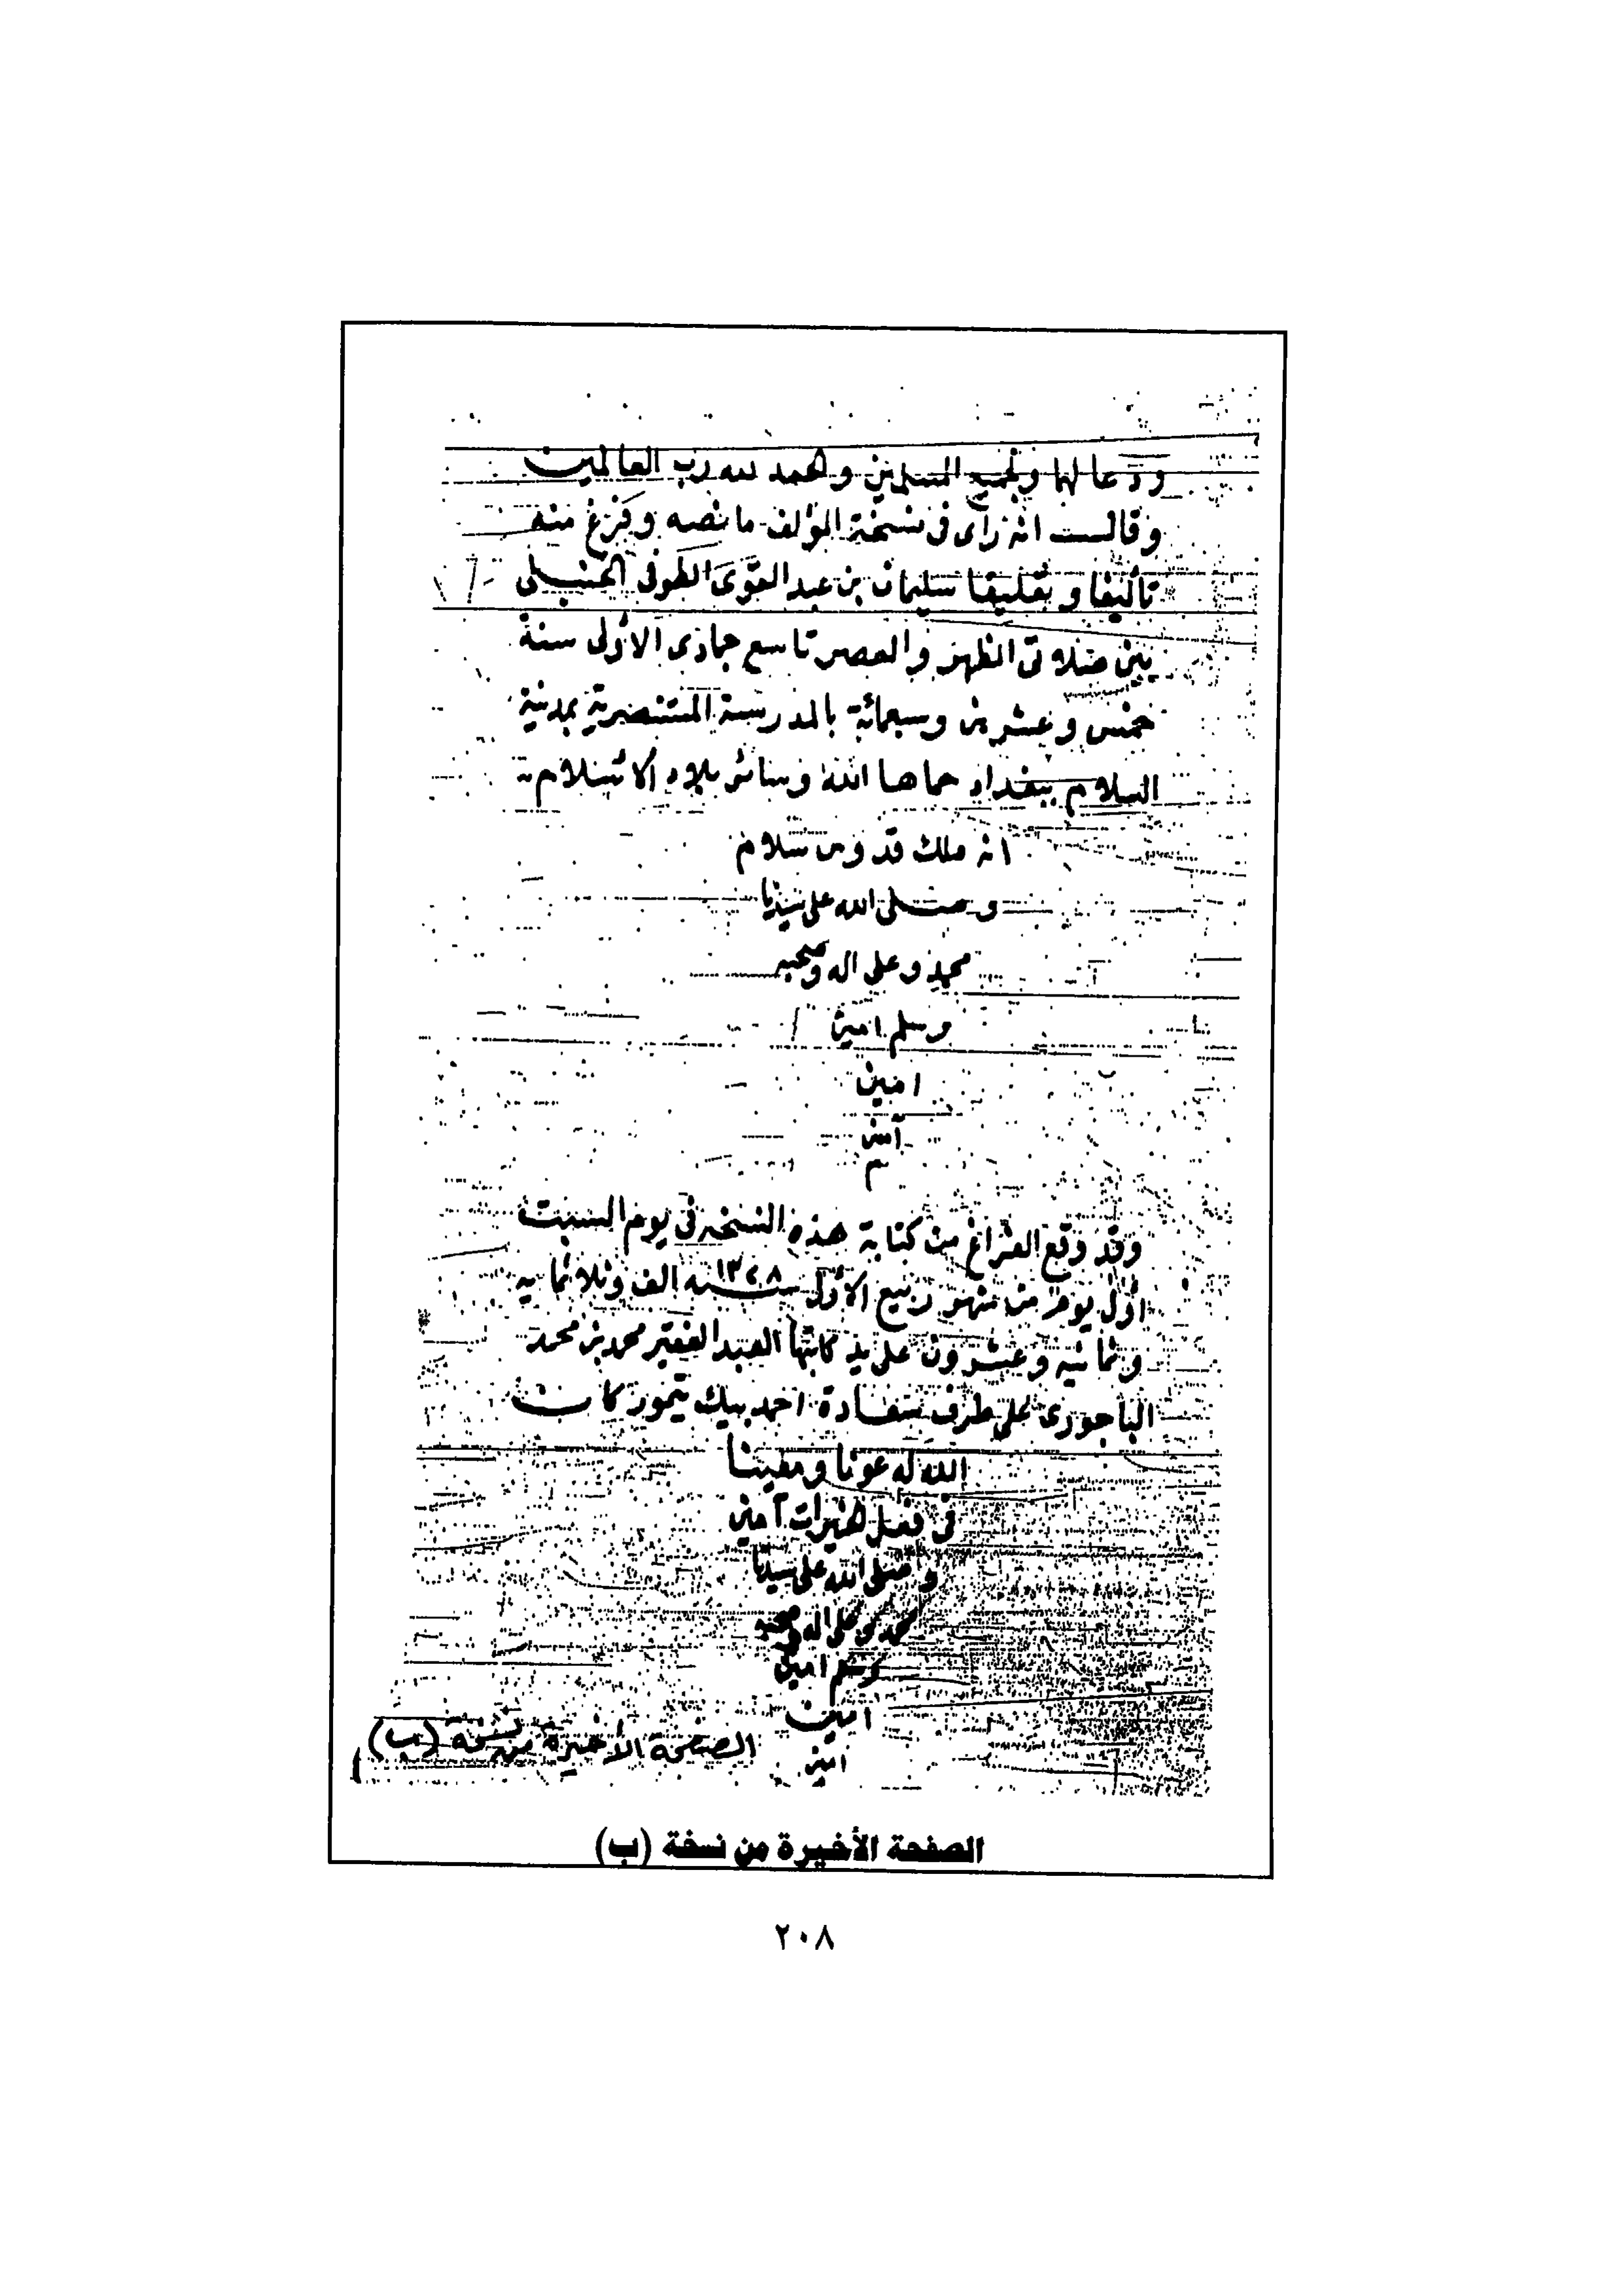 ودعا لهما ولجميع المسلمين والحمد لله رب العالمين
وقالت انه رأى في نسخة المؤلف ما نصه وفرغ منه
تأليفا وتعليقا سليمان بن عبد القوى الطوفى الحنبلى
بين صلاتى الظهر والعصر تاسع جمادى الأولى سنة
خمس وعشرين وسبعمائة بالمدرسة المستنصرية بمدينة
السلام ببغداد حماها الله وسائر بلاد الاسلام
انه ملك قدوس سلام
وصلى الله على سيدنا
محمد وعلى اله وصحبه
وسلم امين
امين
آمين
م
وقد وقع الفراغ من كتابة هذه النسخه فى يوم السبت
اول يوم من شهر ربيع الأول سنه ١٣٢٨ الف وثلاثمايه
وثمانيه وعشرون على يد كاتبها العبد الفقير محمد بن محمد
الباجورى على طرف سعادة احمد بيك تيمور كان
الله له عونا ومعينا
فى فعل الخيرات آمين
وصلى الله على سيدنا
محمد وعلى اله وصحبه
وسلم امين
امين
امين
الصفحة الأخيرة من نسخة (ب)
الصفحة الأخيرة من نسخة (ب)
٢٠٨